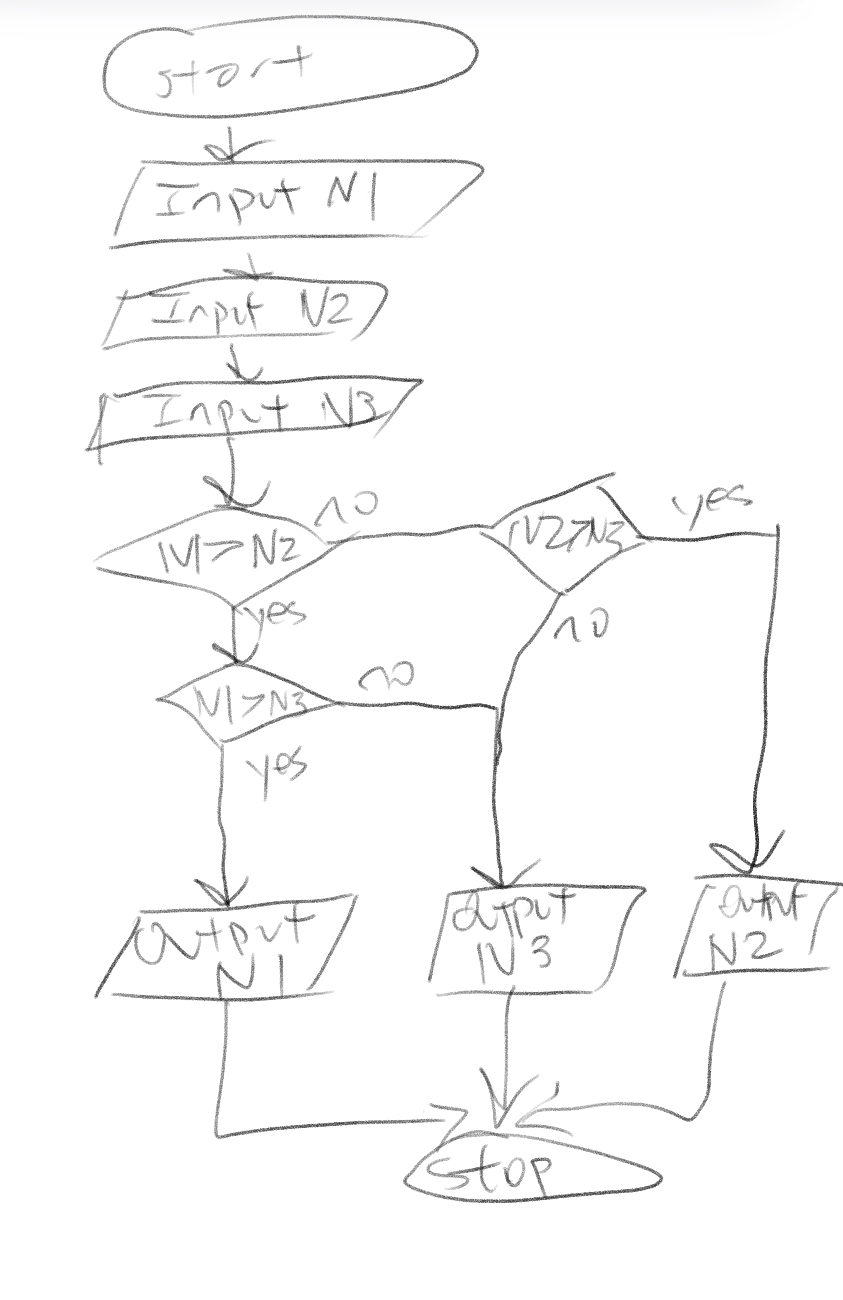 start
Input N1
Input N2
Input N3
N1>N2
no
N2>N3
yes
yes
no
N1>N3
no
yes
Output
N1
Output
N3
Output
N2
Stop